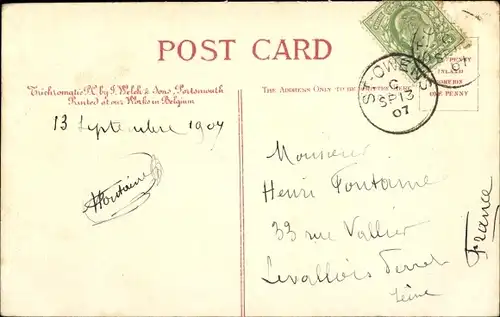 POST CARD
Trichromatic P.C. by J. Welch & Sons, Portsmouth
Printed at our Works in Belgium
THE ADDRESS ONLY TO BE WRITTEN HERE
PENNY
INLAND
ONE PENNY
ST. OWENS
C
SP 13
07
13 Septembre 1907
HFontaine
Monsieur
Henri Fontaine
33 rue Vallier
Levallois Perret
Seine
France